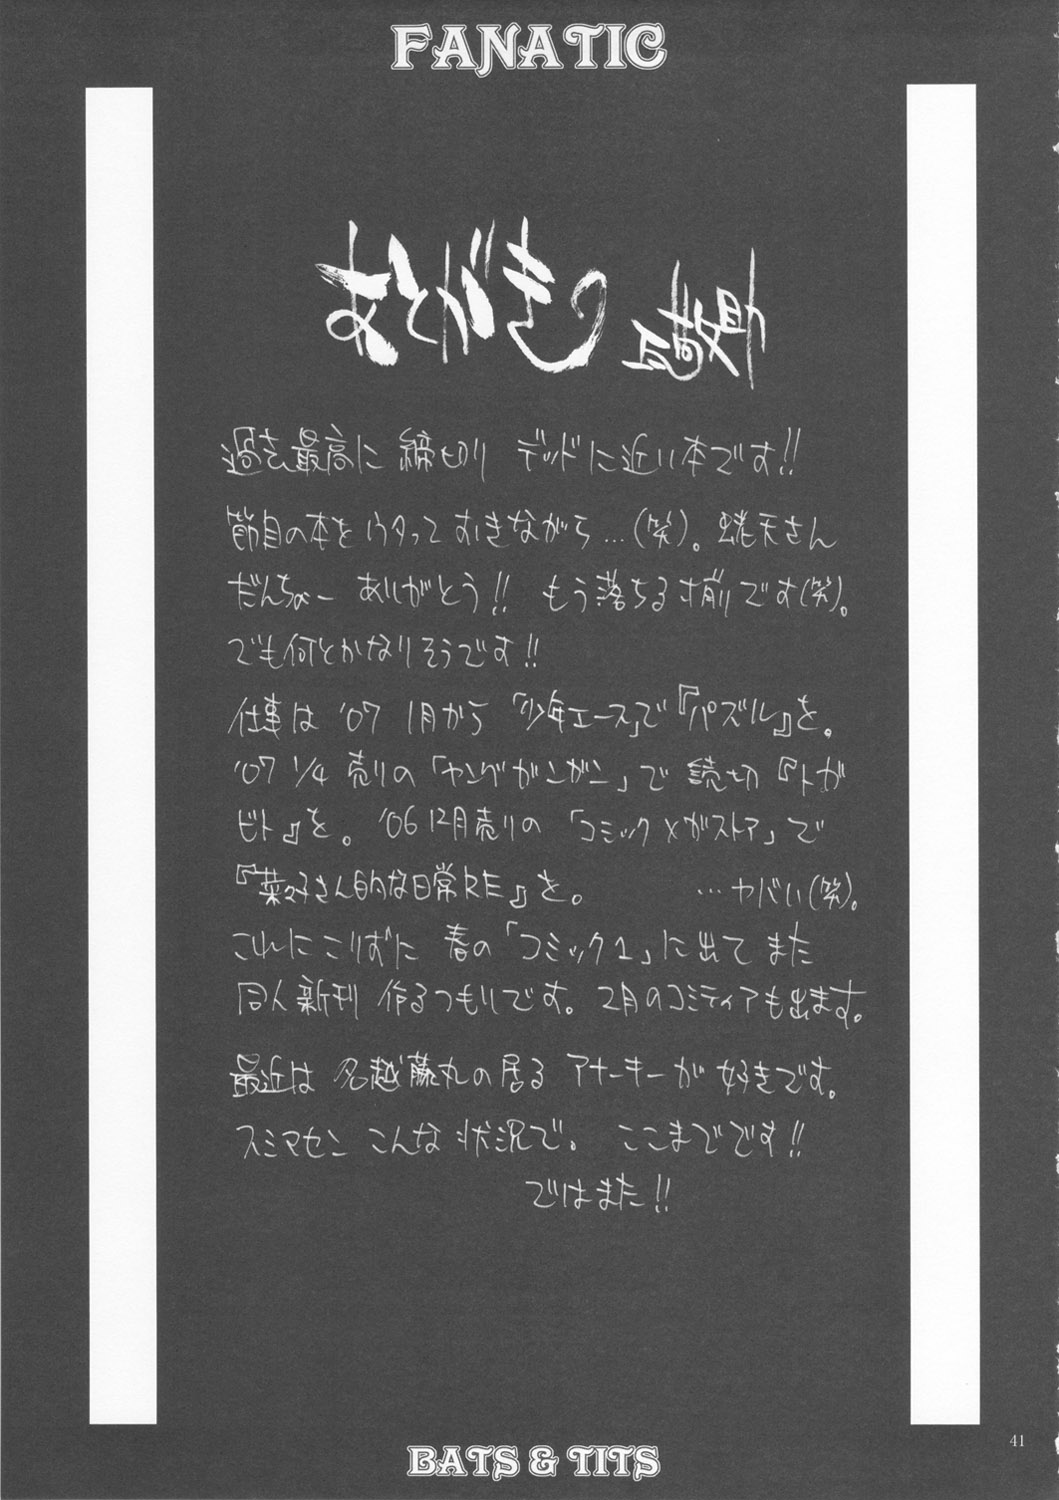 FANATIC
あとがき 瓦敬助
過去最高に 締切り デッドに近い本です!!
節目の本を ウタって おきながら…(笑)。 蜷天さん
だんちょー ありがとう!! もう落ちる寸前です(笑)。
でも何とかなりそうです!!
仕事は '07 1月から 「少年エース」で『パズル』を。
'07 1/4 売りの「ヤングガンガン」で 読切 『トガ
ビト』を。 '06 12月売りの 「コミック×ガストア」で
『菜々子さん的な日常RE』を。 …ヤバい(笑)。
これにこりずに 春の「コミック1」に出て また
同人新刊 作るつもりです。2月のコミティアも出ます。
最近は 名越藤丸の居る アナーキーが 好きです。
スミマセン こんな 状況で。 ここまでです!!
ではまた!!
BATS & TITS
41